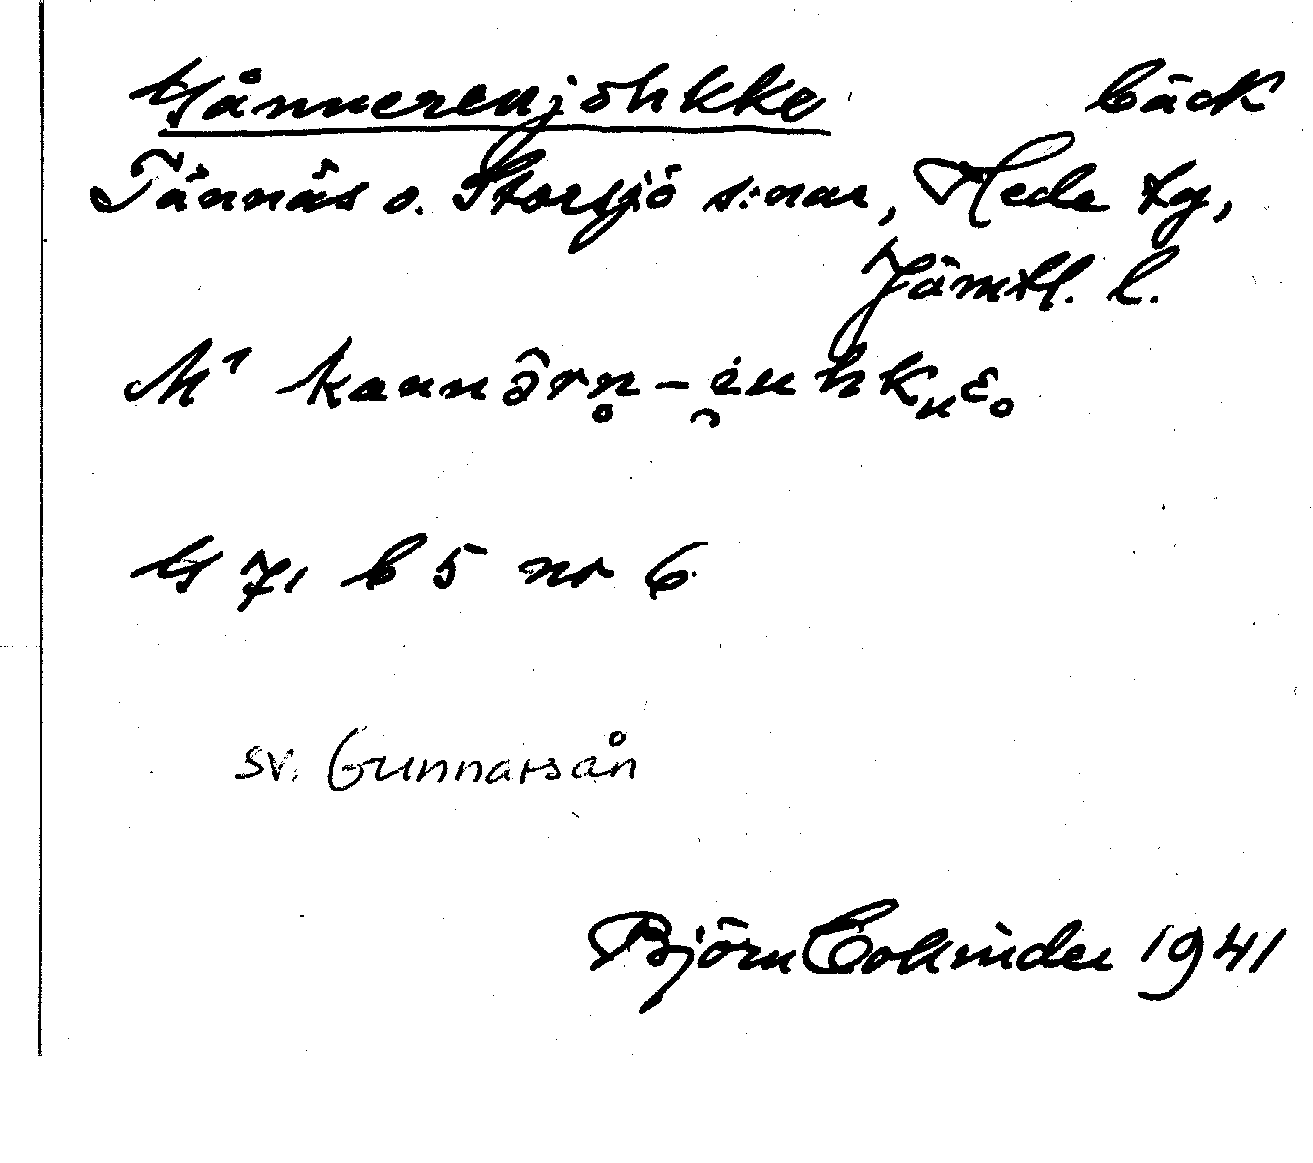 Gånnerenjohkke bäck
Tännäs o. Storsjö s:nar, Hede tg,
Jämtl. l.
G 71 b 5 nr 6
sv. Gunnarsån
Björn Collinder 1941